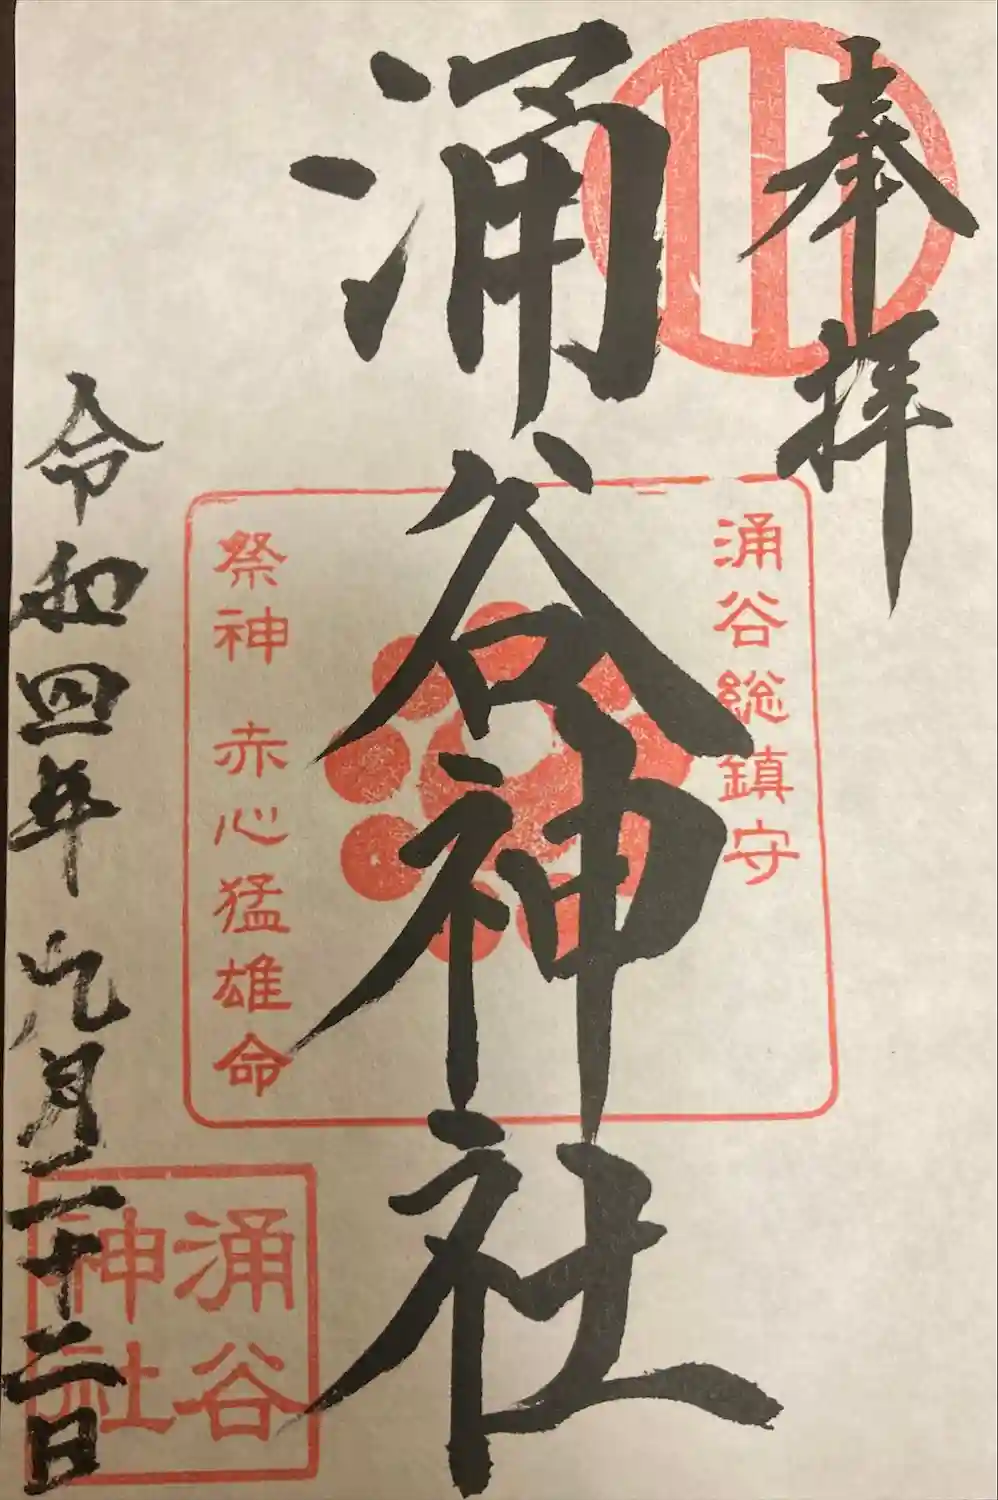 奉拝
涌谷総鎮守
涌谷神社
祭神 赤心猛雄命
令和四年九月二十二日
涌谷
神社